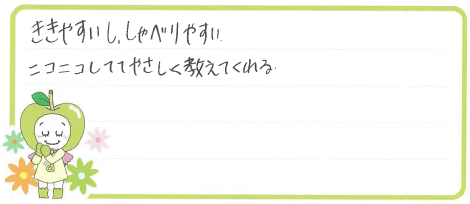 ききやすいし、しゃべりやすい
ニコニコしててやさしく教えてくれる